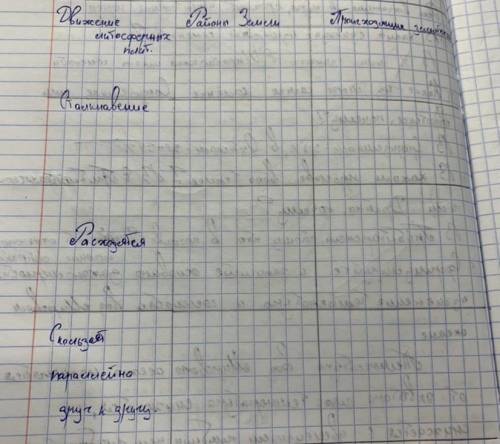 Движение литосферных плит.
Районы Земли
Происходящие
Столкновение
Расходятся
Скользят
параллельно
друг к другу